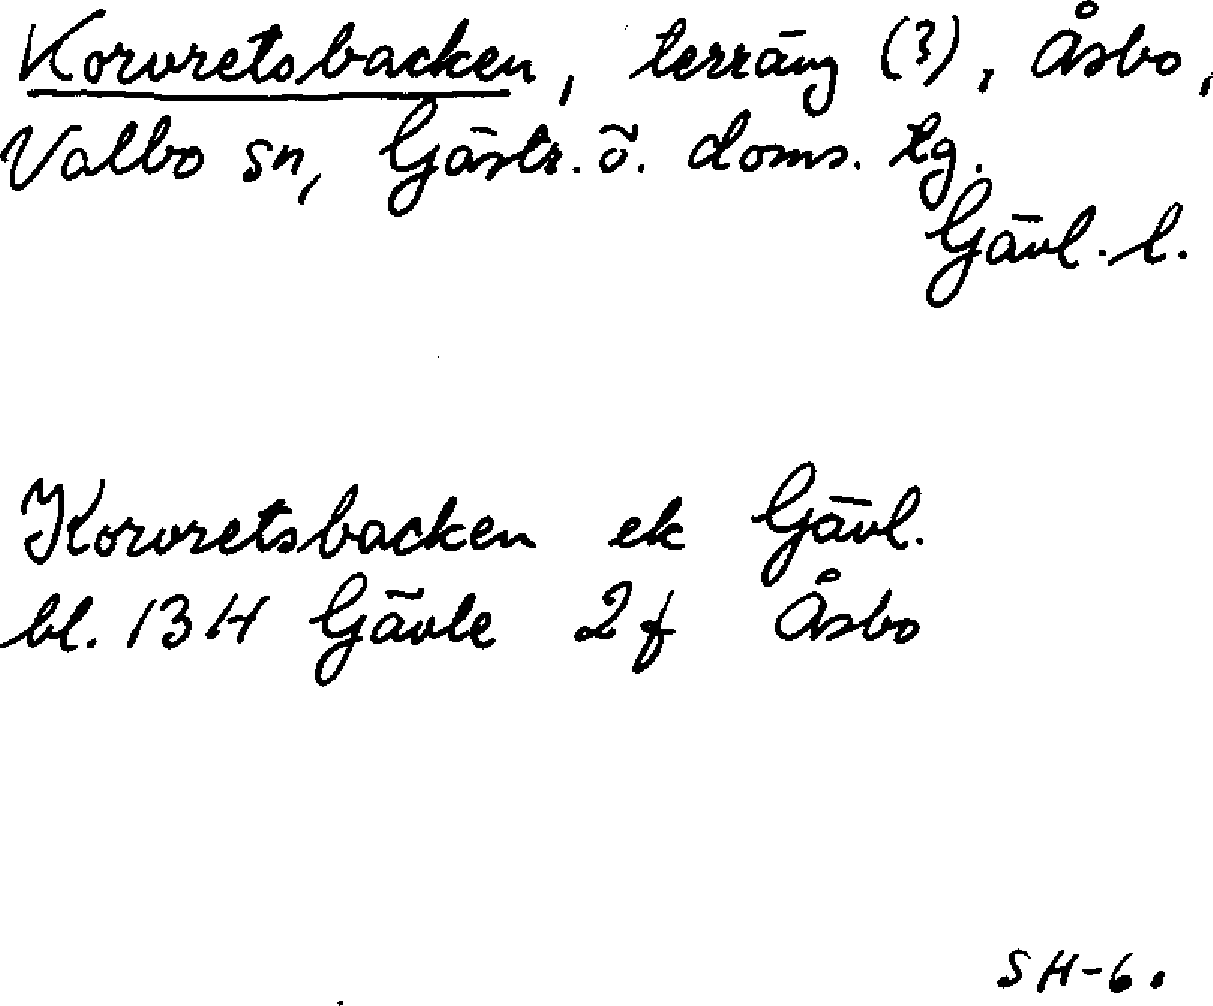 Korvretsbacken, terräng (?), Åsbo,
Valbo sn, Gästr. ö. doms. tg.
Gävl. l.
Korvretsbacken ek Gävl.
bl. 13 H Gävle 2 f Åsbo
SH-6.